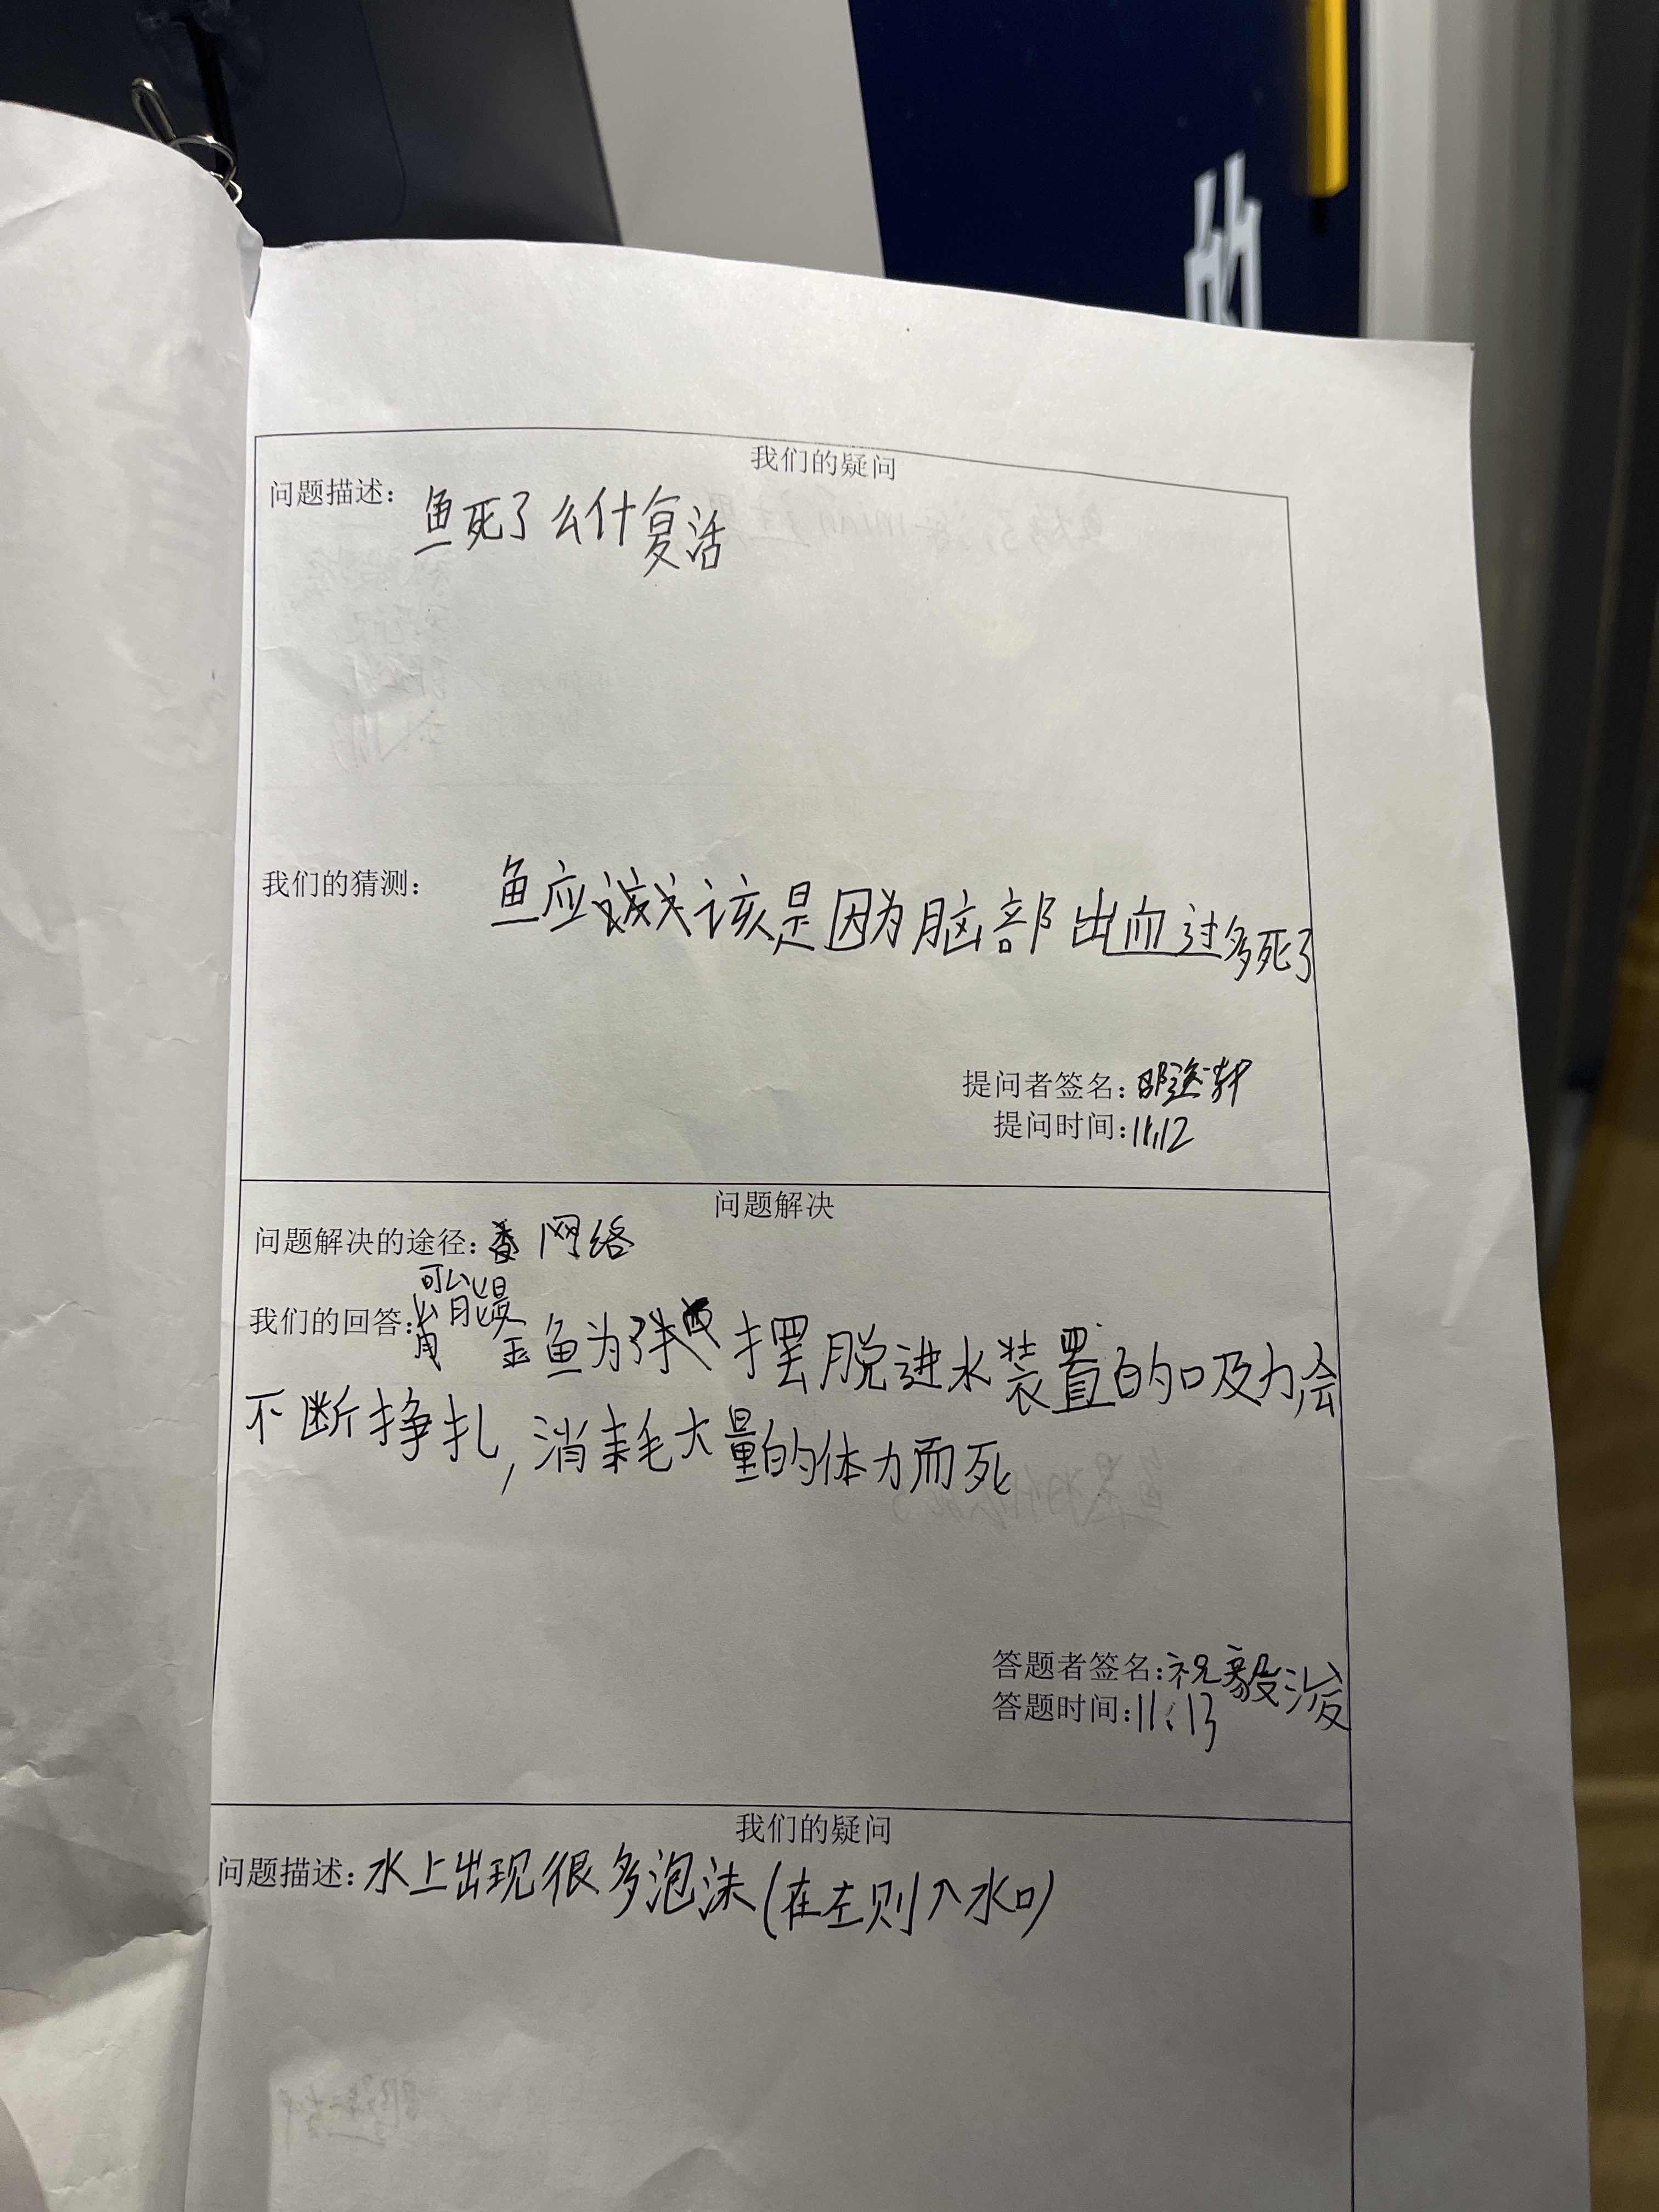 的
我们的疑问
问题描述：鱼死了么什复活
我们的猜测：鱼应该是因为脑部出血过多死了
提问者签名：
提问时间：11.12
问题解决
问题解决的途径：网络
可以是
我们的回答：金鱼为了摆脱进水装置的吸力会
不断挣扎，消耗大量的体力而死
答题者签名：祝毅浚
答题时间：11.13
我们的疑问
问题描述：水上出现很多泡沫（在左则入水口）